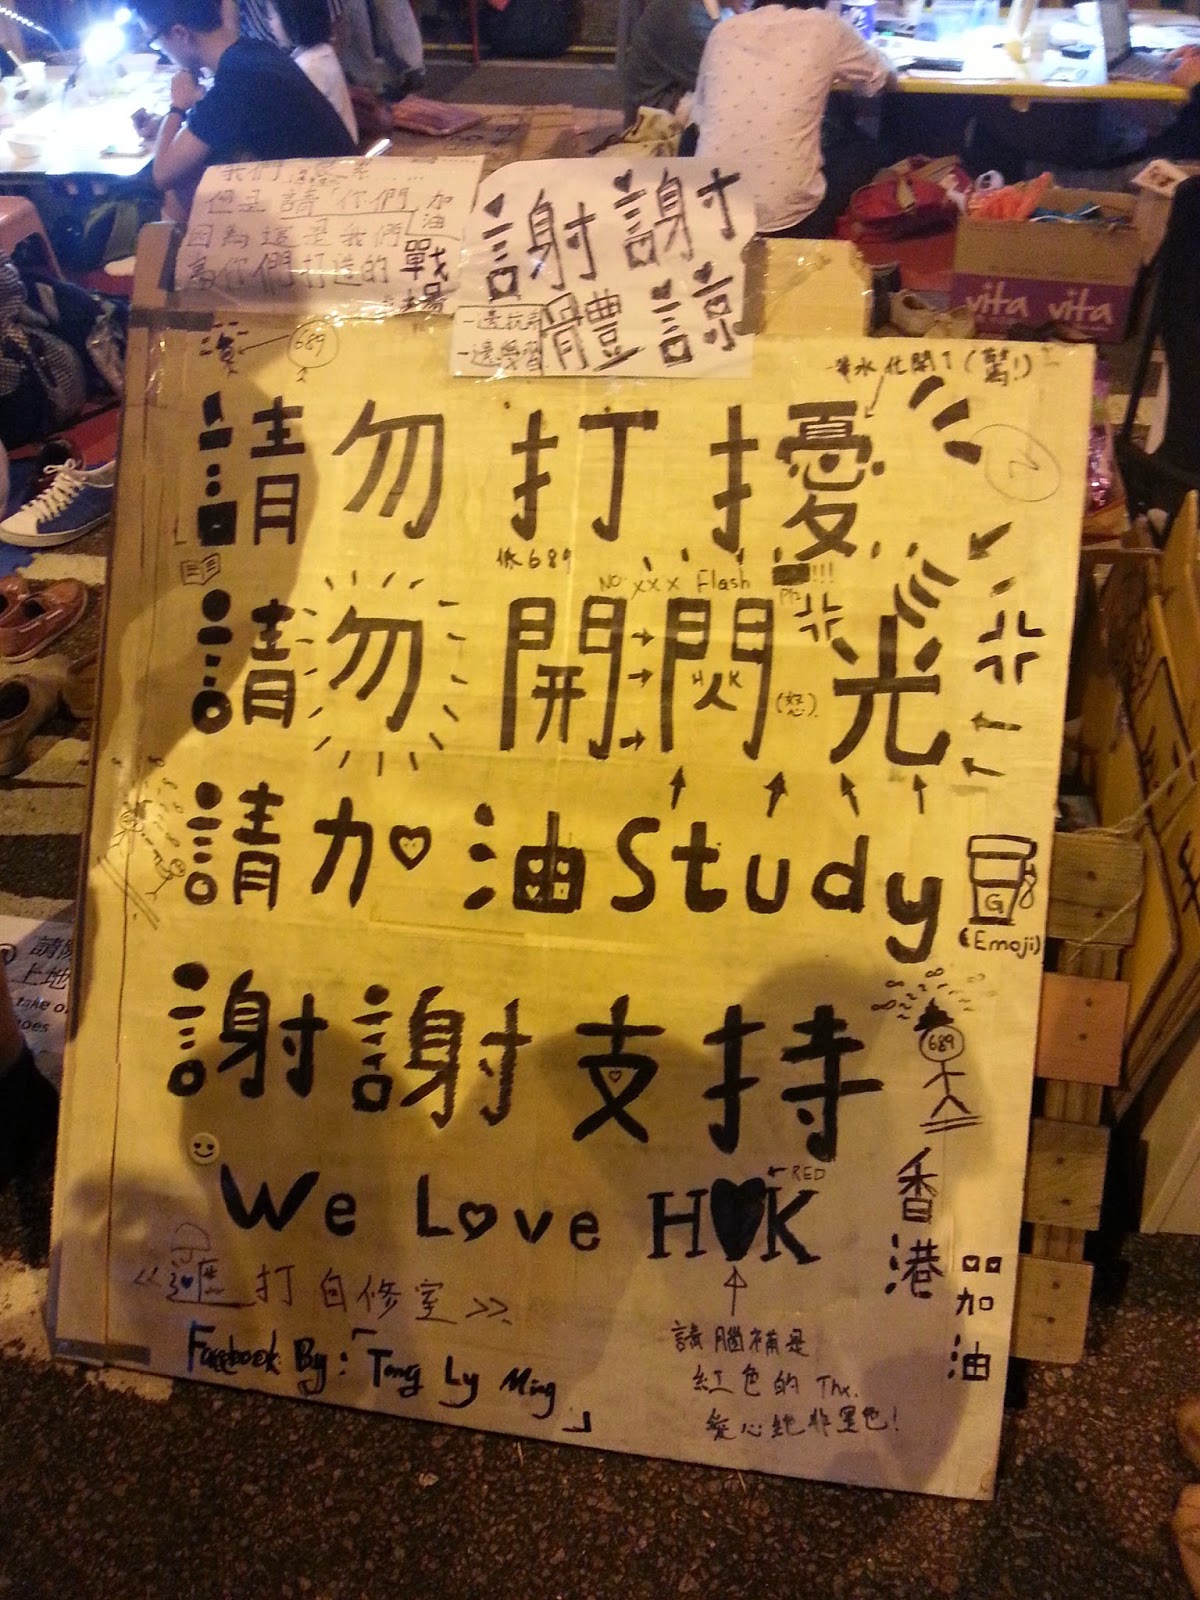 但是請「你們」加油
因為這是我們
為你們打造的戰場
謝謝
體諒
一邊抗爭
一邊學習
689
請勿打擾
筆水化開了(驚!)
低689
NO XXX Flash
!!!
請勿開閃光
H K
(怒)
請加油Study
G
(Emoji)
謝謝支持
689
We Love HK
RED
香港
加油
打自修室>>
Facebook By:「Tong Ly Ming」
請腦補是
紅色的 Thx.
愛心絕非黑色!
vita vita
請除
上地
take o